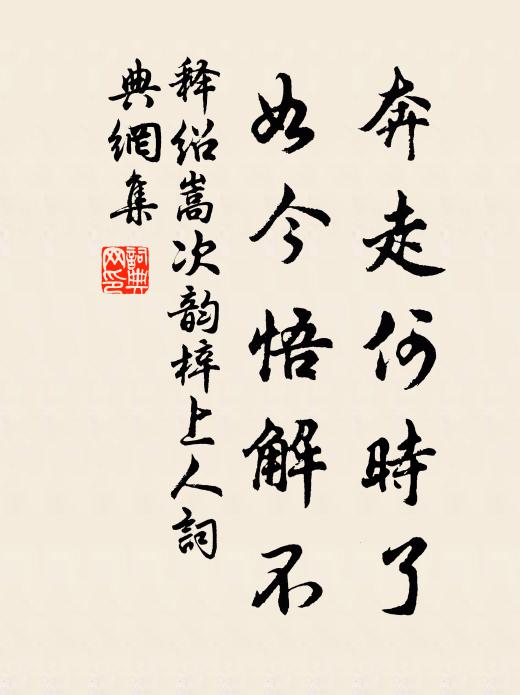 奔走何時了
如今悟解不
释绍嵩次韵梓上人詞
典網集
詞典
网印